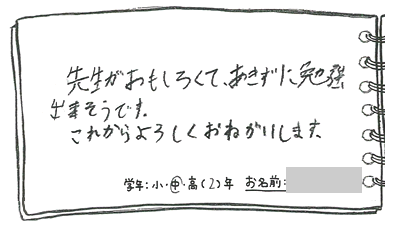 先生がおもしろくて、あきずに勉強
出来そうです。
これからよろしくおねがいします
学年:小・中・高(2)年 お名前: